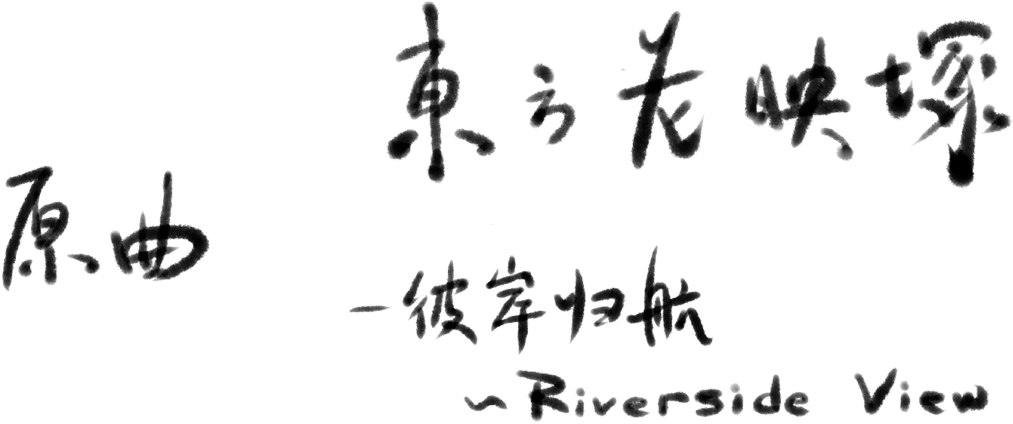 原曲
東方花映塚
-彼岸归航
~Riverside View